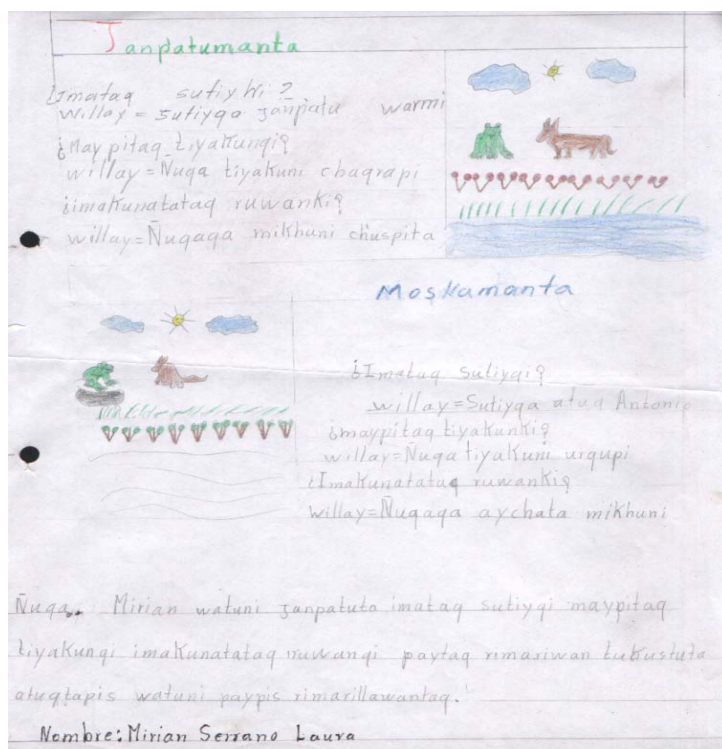 Janpatumanta
¿Imataq sutiyki?
willay = sutiyqa janpatu warmi
¿Maypitaq tiyakunqi?
willay = Ñuqa tiyakuni chaqrapi
¿imakunatataq ruwanki?
willay = Ñuqaqa mikhuni chuspita
Moskamanta
¿Imataq sutiyqi?
willay = Sutiyqa atuq Antonio
¿maypitaq tiyakunki?
willay = Ñuqa tiyakuni urqupi
¿Imakunatataq ruwanki?
willay = Ñuqaqa aychata mikhuni
Ñuqa. Mirian watuni janpatuta imataq sutiyqi maypitaq
tiyakunqi imakunatataq ruwanqi paytaq rimariwan
atuqtapis watuni paypis rimarillawantaq.
Nombre: Mirian Serrano Laura